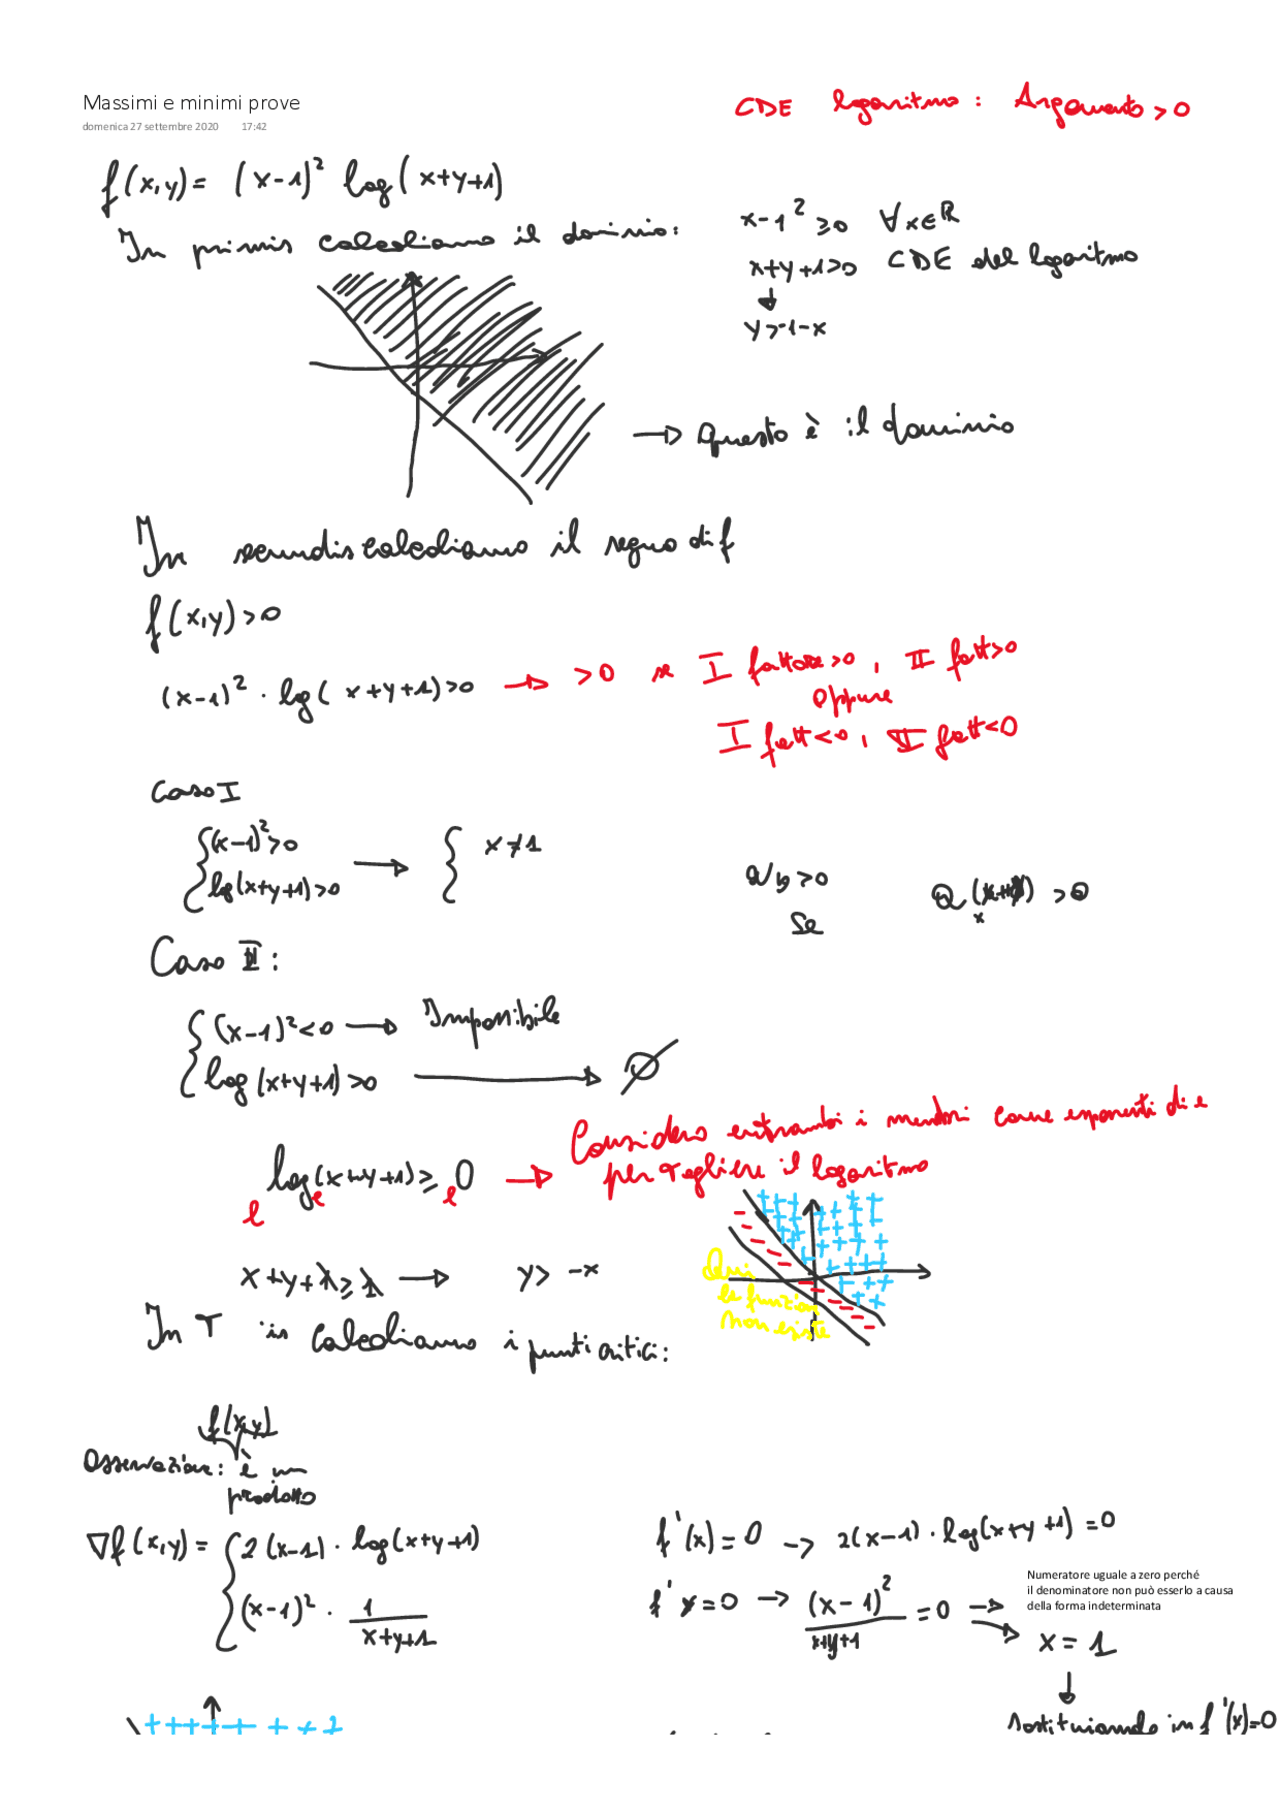 Massimi e minimi prove
domenica 27 settembre 2020 17:42
CDE logaritmo: Argomento > 0
f(x,y) = (x-1)² log(x+y+1)
In primis calcoliamo il dominio:
x-1² ≥0 ∀x∈ℝ
x+y+1>0 CDE del logaritmo
↓
y>-1-x
→ Questo è il dominio
In secundis calcoliamo il segno di f
f(x,y)>0
(x-1)² · log(x+y+1)>0 → >0 se I fattore>0, II fatt>0
oppure
I fatt<0, II fatt<0
Caso I
{(x-1)²>0 → { x≠1
log(x+y+1)>0
>0
Se
>0
Caso II:
{(x-1)²<0 → Impossibile
log(x+y+1)>0 → ∅
Considero entrambi i membri come esponenti di e
per togliere il logaritmo
e log e (x+y+1) ≥ e 0 →
x+y+1≥1 → y> -x
Qui
la funzion
non esiste
In T is calcoliamo i punti critici:
f(x,y)
Osservazione: è un
prodotto
∇f(x,y) = {2(x-1) · log(x+y+1)
(x-1)² · 1/(x+y+1)
f'(x)=0 → 2(x-1)·log(x+y+1)=0
f'y=0 → (x-1)²/(x+y+1) =0 →
Numeratore uguale a zero perché
il denominatore non può esserlo a causa
della forma indeterminata
x=1
↓
Sostituiamo in f'(x)=0
+ + + + + + +